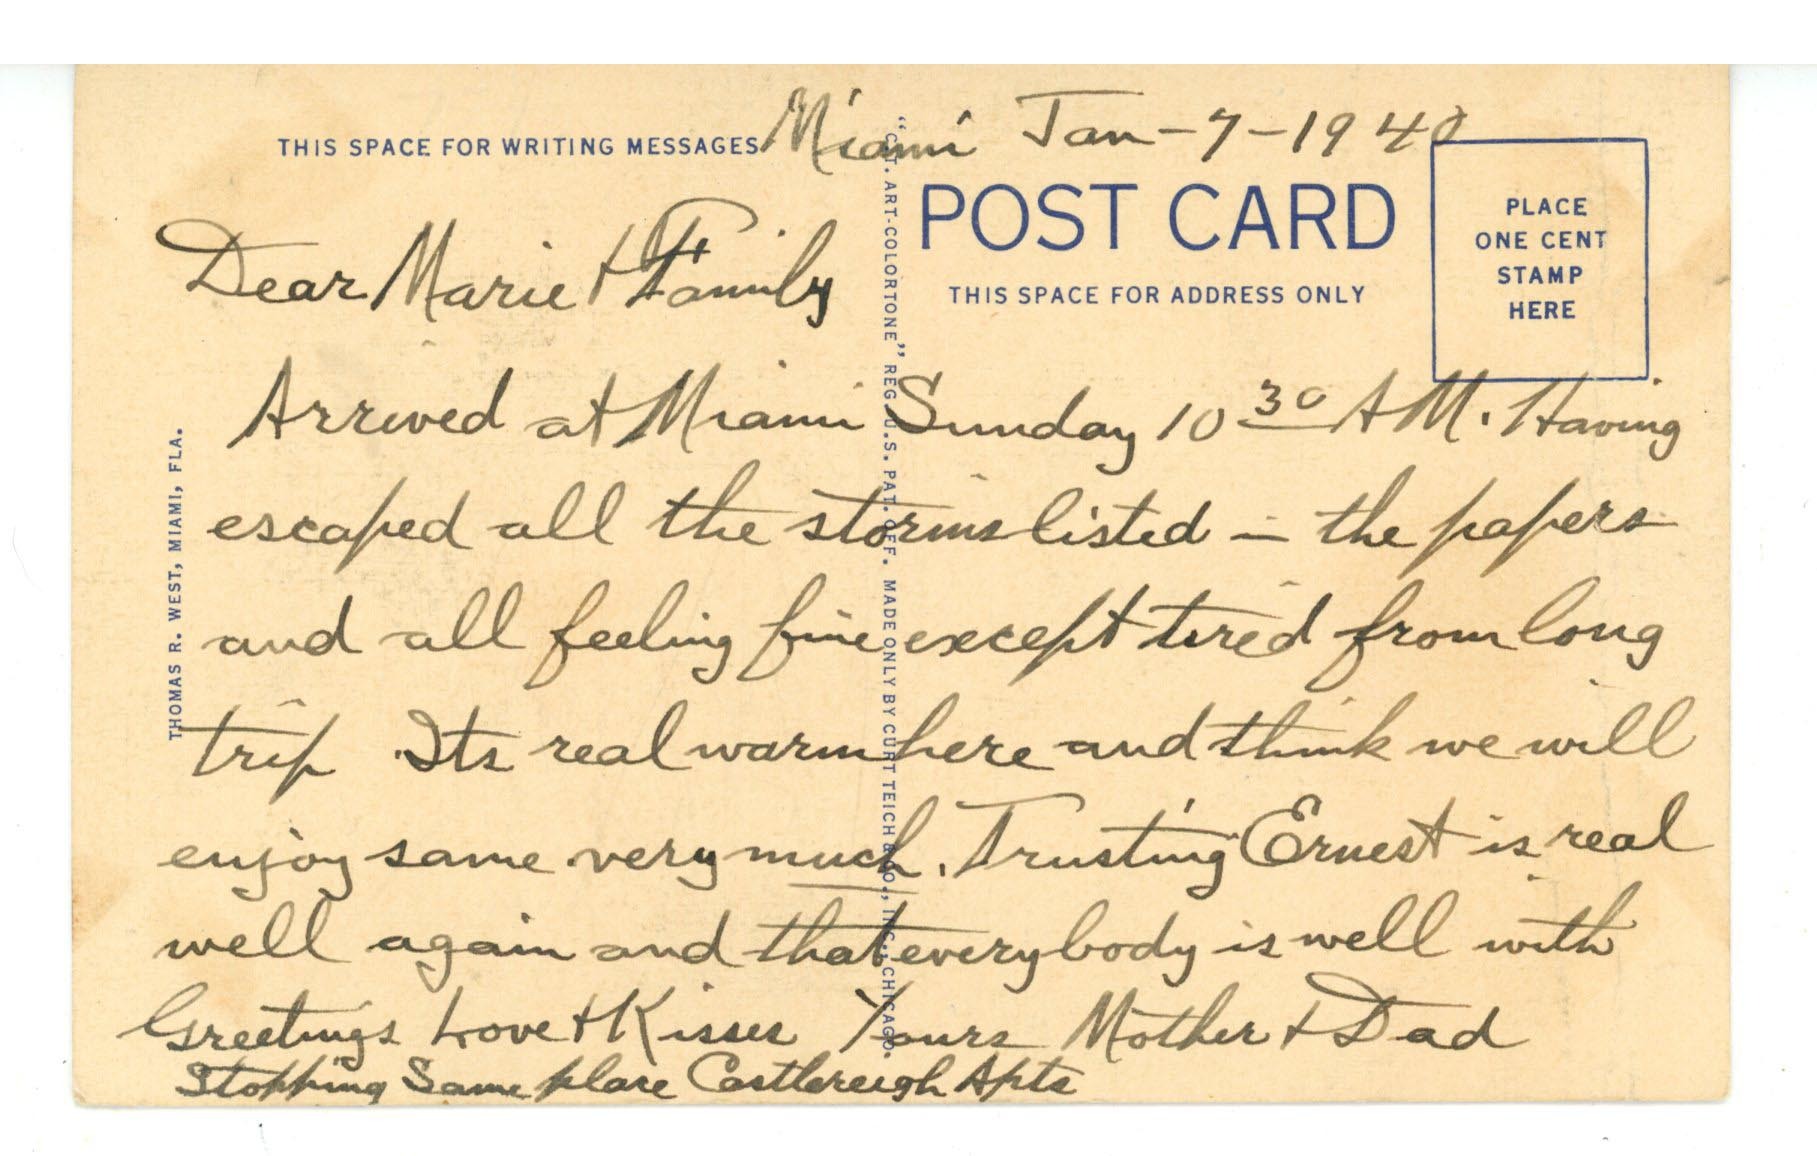 Miami Jan-7-1940
THIS SPACE FOR WRITING MESSAGES
POST CARD
THIS SPACE FOR ADDRESS ONLY
PLACE
ONE CENT
STAMP
HERE
Dear Marie + Family
Arrived at Miami Sunday 10 30 AM. Having
escaped all the storms listed – the papers
and all feeling fine except tired from long
trip Its real warm here and think we will
enjoy same very much. Trusting Ernest is real
well again and that everybody is well with
Greetings Love + Kisses Yours Mother + Dad
Stopping Same place Castlereigh Apts
THOMAS R. WEST, MIAMI, FLA.
"C.T. ART-COLORTONE" REG. U.S. PAT. OFF. MADE ONLY BY CURT TEICH & CO., INC., CHICAGO.